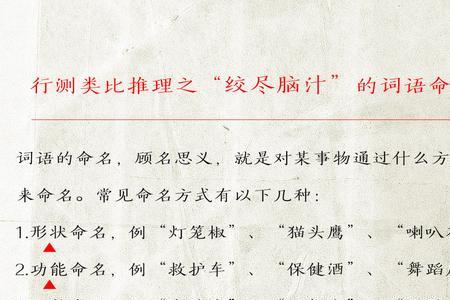 行测类比推理之“绞尽脑汁”的词语命
词语的命名，顾名思义，就是对某事物通过什么方
来命名。常见命名方式有以下几种：
1.形状命名，例“灯笼椒”、“猫头鹰”、“喇叭
2.功能命名，例“救护车”、“保健酒”、“舞蹈